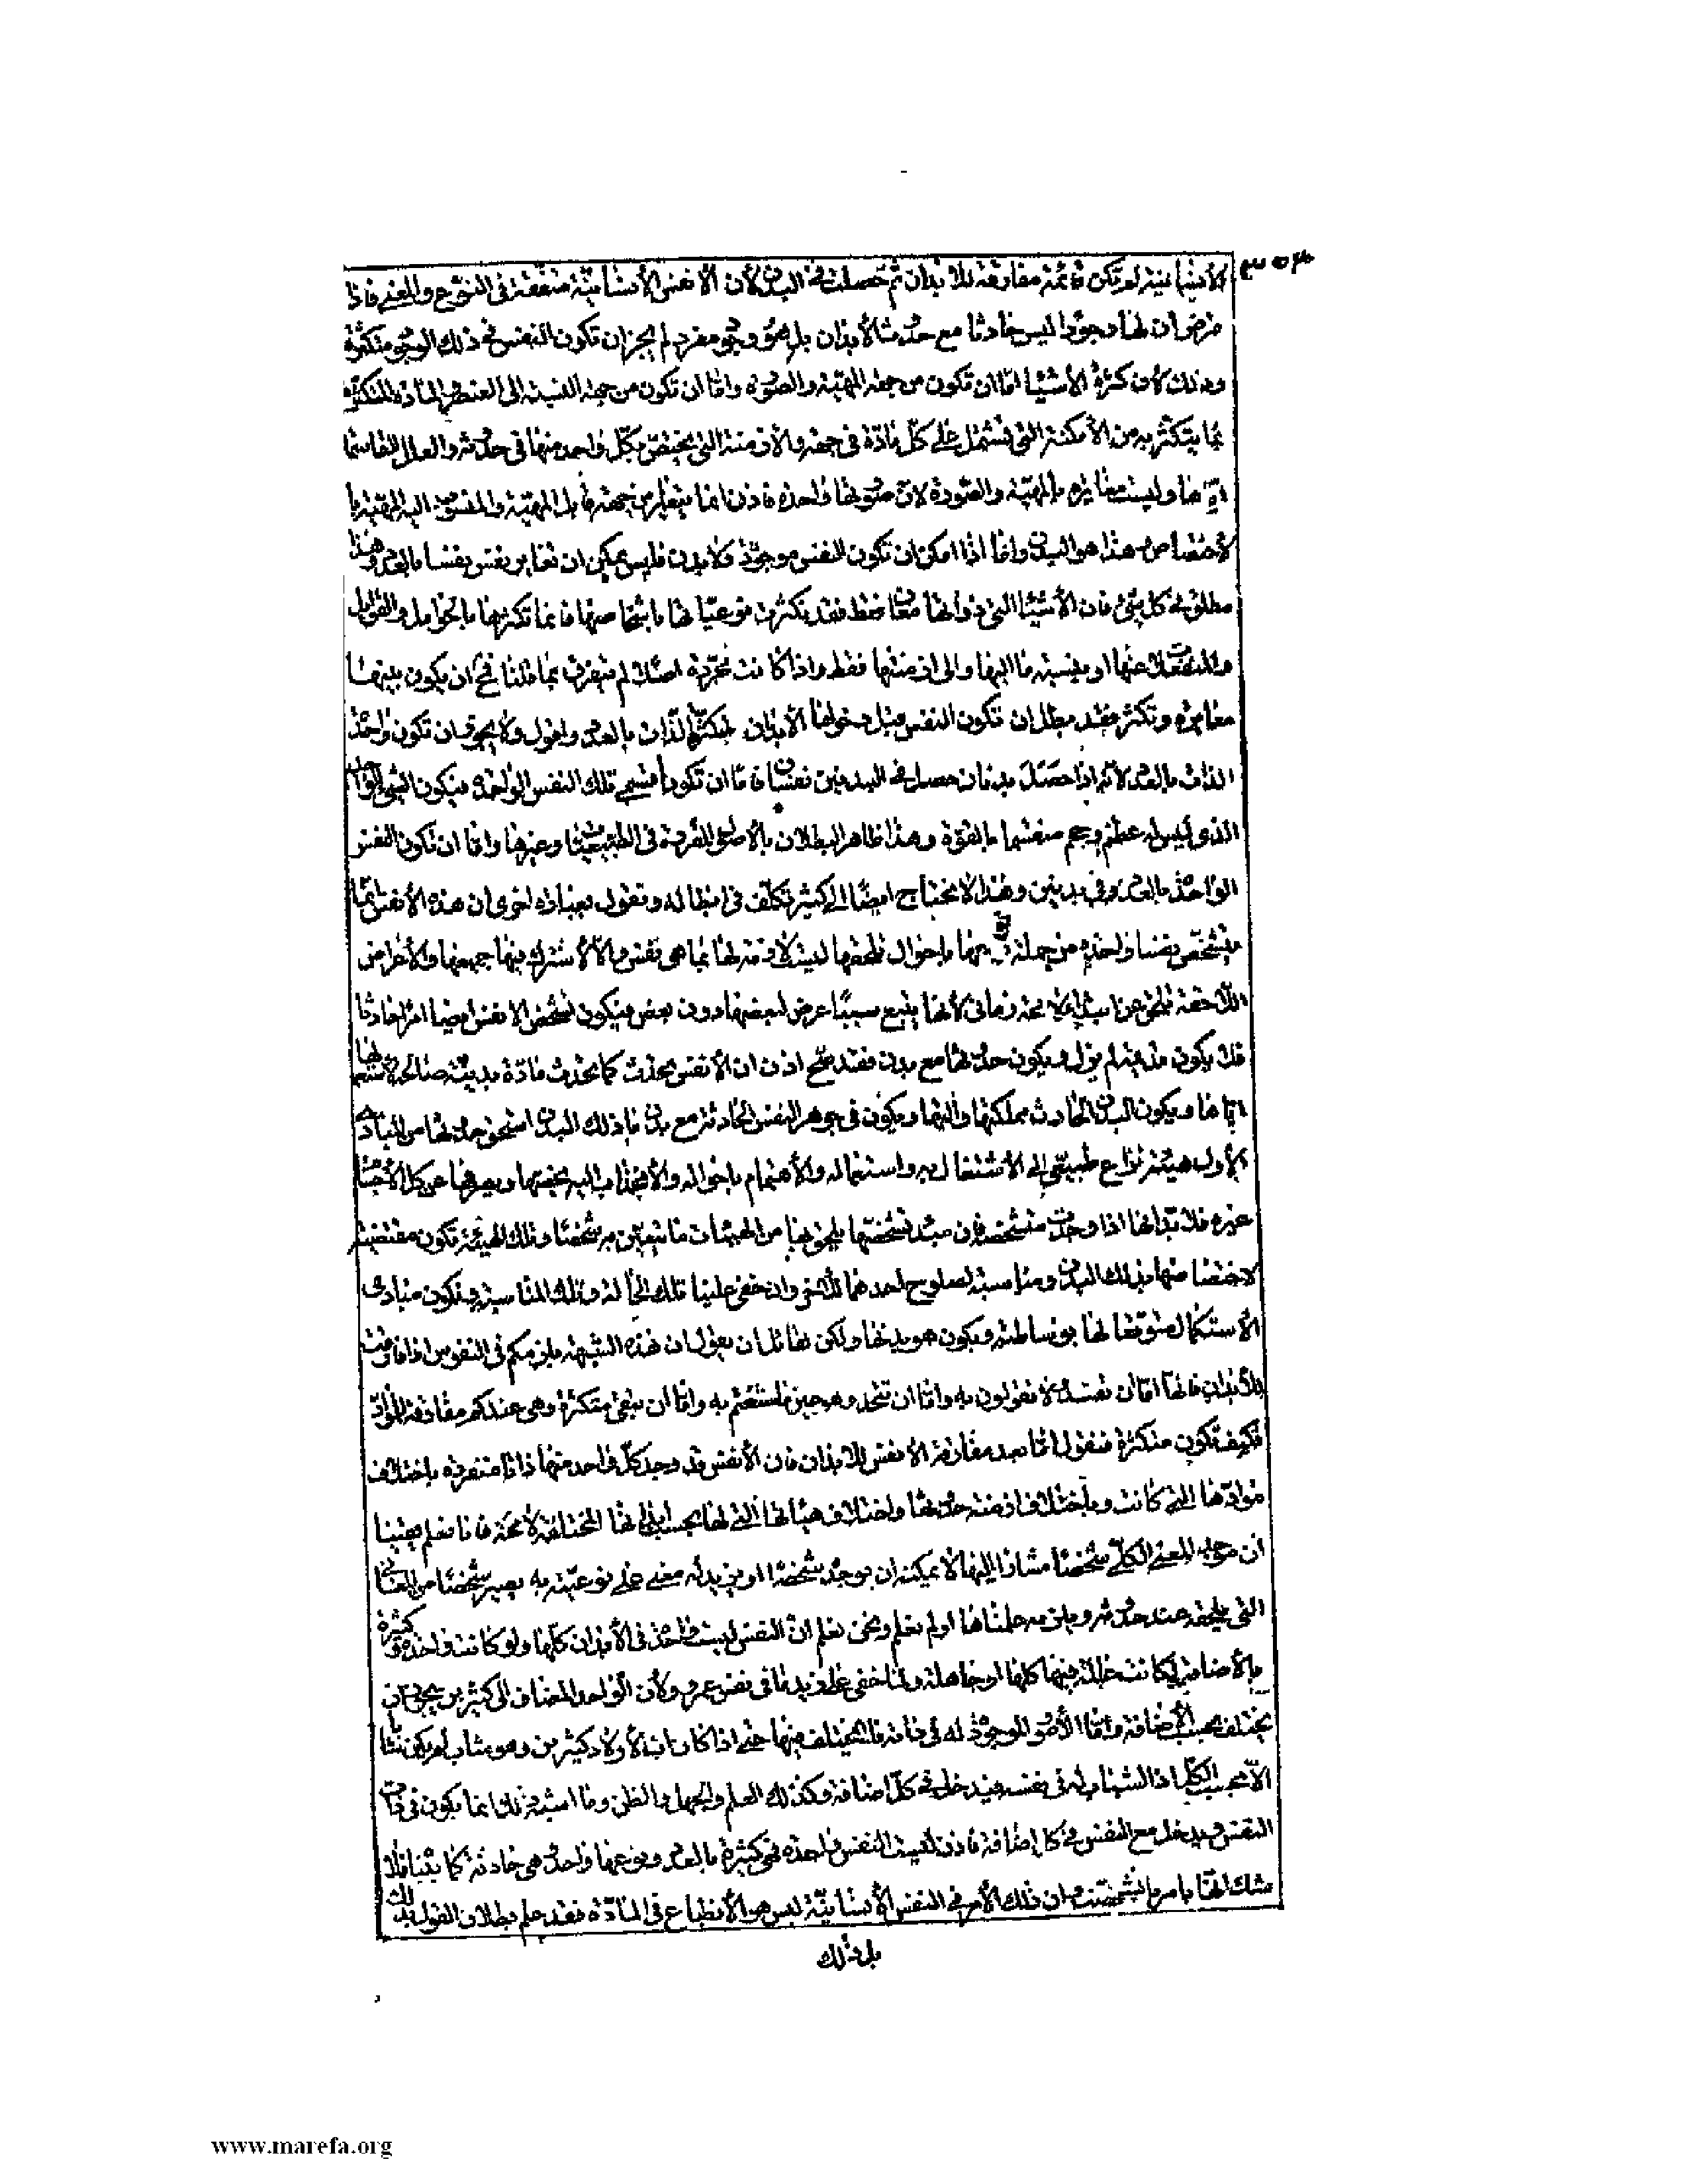 ٣٥٣
الأنسانية لم تكن قائمة مفارقة للأبدان ثم حصلت فى البدن لأن الأنفس الأنسانيّة متفقة فى النوع والمعنى فاذا
فرض ان لها وجودا ليس حادثا مع حدوث الأبدان بل هو وجود مفرد لم يجز ان تكون النفس فى ذلك الوجود متكثرة
وذلك لأن كثرة الأشياء امّا ان تكون من جهة المهيّة والصورة وامّا ان تكون من جهة النسبة الى العنصر والمادّة المتكثرة
بما يتكثر به من الأمكنة التى تشتمل على كلّ مادّة فى جهة والأزمنة التى يختصّ بكلّ واحد منها فى حدوثه والعلل القاسمة
ايّاها وليست مغايرة بالمهيّة والصورة لأن صورتها واحدة فاذن انما يتغاير من جهة قابل المهيّة والمنسوب اليه المهيّة با
لأختصاص وهذا هو البدن وامّا اذا امكن ان تكون النفس موجودة ولا بدن فليس يمكن ان تغاير نفس نفسا بالعدد وهذا
مطلق فى كل شئ فان الأشياء التى ذواتها معان فقط فقد تكثرت نوعيّاتها باشخاصها فانما تكثرها بالحوامل والقوابل
والمنفعلات عنها او بنسبة ما اليها والى ازمنتها فقط واذا كانت مجرّدة اصلا لم تفترق بما قلنا فمح ان يكون بينها
مغايرة وتكثر فقد بطل ان تكون النفس قبل دخولها الأبدان متكثرة الذات بالعدد واقول ولا يجوز ان تكون واحدة
الذات بالعدد لأنه اذا حصل بدنان حصل فى البدنين نفسان فامّا ان تكونا قسمى تلك النفس الواحدة فيكون الشئ الواحد
الذى ليس له عظم وحجم منقسما بالقوة وهذا ظاهر البطلان بالأصول المقررة فى الطبيعيات وغيرها وامّا ان تكون النفس
الواحدة بالعدد فى بدنين وهذا لا يحتاج ايضا الى كثير تكلّف فى ابطاله ونقول بعبارة اخرى ان هذه الأنفس انما
يتشخص نفسا واحدة من جملة نوعها باحوال تلحقها ليست لازمة لها بما هى نفس والّا لأشترك فيها جميعها والأعراض
اللاحقة تلحق عن ابتداء لا محة زمانى لأنها يتبع سببا عرض لبعضها دون بعض فيكون تشخص الأنفس ايضا امرا حادثا
فلا يكون قديمة لم يزل ويكون حدوثها مع بدن فقد صحّ اذن ان الأنفس يحدث كما يحدث مادّة بدنيّة صالحة لأستعمالها
ايّاها ويكون البدن الحادث مملكتها وآلتها ويكون فى جوهر النفس الحادثة مع بدن ما ذلك البدن استحق حدوثها من المبادى
الأول هيئة نزاع طبيعى الى الأشتغال به واستعماله والأهتمام باحواله والأنجذاب اليه يخصّها ويصرفها عن كل الأجسام
غيره فلا بدّ انها اذا وجدت متشخصة فان مبدء تشخصها يلحق بها من الهيئات ما يتعيّن به شخصا وتلك الهيئة تكون مقتضية
لاختصاصها بذلك البدن ومناسبة لصلوح احدهما للأخر وان خفى علينا تلك الحالة وتلك المناسبة وتكون مبادى
الأستكمال متوقعا لها بوساطته ويكون هو بدنها ولكن لقائل ان يقول ان هذه الشبهة يلزمكم فى النفوس اذا فارقت
للأبدان فانها امّا ان تفسد ولا تقولون به وامّا ان تتحد وهو عين ما شنعتم به وامّا ان تبقى متكثرة وهى عندكم مفارقة للمواد
فكيف تكون متكثرة فنقول امّا بعد مفارقة الأنفس للأبدان فان الأنفس قد وجد كلّ واحد منها ذاتا منفردة باختلاف
موادّها التى كانت وباختلاف ازمنة حدوثها واختلاف هيئاتها التى لها بحسب ابدانها المختلفة لا محة فانا نعلم يقينا
ان موجد المعنى الكلّى شخصا مشارا اليها لا يمكنه ان يوجده شخصا او يزيد له معنى على نوعيّته به يصير شخصا من المعانى
التى تلحقه عند حدوثه ويلزمه علمناها او لم نعلم ونحن نعلم انّ النفس ليست واحدة فى الأبدان كلّها ولو كانت واحدة وكثيرة
بالأضافة لكانت عالمة فيها كلها او جاهلة ولما خفى على زيد ما فى نفس عمرو ولأن الواحد المضاف الى كثيرين يجوز ان
يختلف بحسب الأضافة وامّا الأمور الموجودة له فى ذاته فلا يختلف فيها حتى اذا كان اب لأولاد كثيرين وهو شاب لم يكن شابا
الّا بحسب الكل اذ الشباب له فى نفسه فيدخل فى كلّ اضافة وكذلك العلم والجهل والظن وما اشبه ذلك انما يكون فى ذات
النفس ويدخل مع النفس فى كل اضافة فاذن ليست النفس واحدة فهى كثيرة بالعدد ونوعها واحد وهى حادثة كما بيّناه فلا
شك انها بامر ما تشخصت وان ذلك الأمر فى النفس الأنسانيّة ليس هو الأنطباع فى المادّة فقد علم بطلان القول بذلك
بل ذلك
www.marefa.org